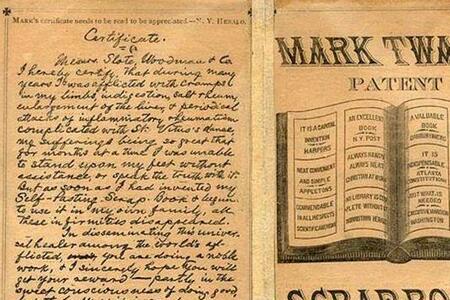 MARK's certificate needs to be read to be appreciated.—N. Y. HERALD.
Certificate.
Messrs. Slote, Woodman & Co.
I hereby certify, that during many
years I was afflicted with cramps
in my limbs, indigestion, salt rheum,
enlargement of the liver, & periodical
attacks of inflammatory rheumatism
complicated with St. Vitus's dance,
my sufferings being so great that
for months at a time I was unable
to stand upon my feet without
assistance, or speak the truth with it.
But as soon as I had invented my
Self-Pasting Scrap-Book & begun
to use it in my own family, all
these infirmities disappeared.
In disseminating this univer-
sal healer among the world's af-
flicted, you are doing a noble
work, & I sincerely hope you will
get your reward — partly in the
sweet consciousness of doing good,
MARK TWA
PATENT
IT IS A DANIAL
INVENTION
HARPERS
NEAT CONVENIENT
AND SIMPLE
APPLETONS
COMMENDABLE
IN ALL RESPECTS
SCIENTIFIC AMERICAN
AN EXCELLENT
BOOK
N.Y. POST
ALWAYS HANDY
ALWAYS NEAT
NO LIBRARY IS COM
PLETE WITHOUT
A VALUABLE
BOOK
IT IS
INDISPENSABLE
ATLANTA
CONSTITUTION
JUST WHAT IS
NEEDED
WASHINGTON
SCRAP BOO